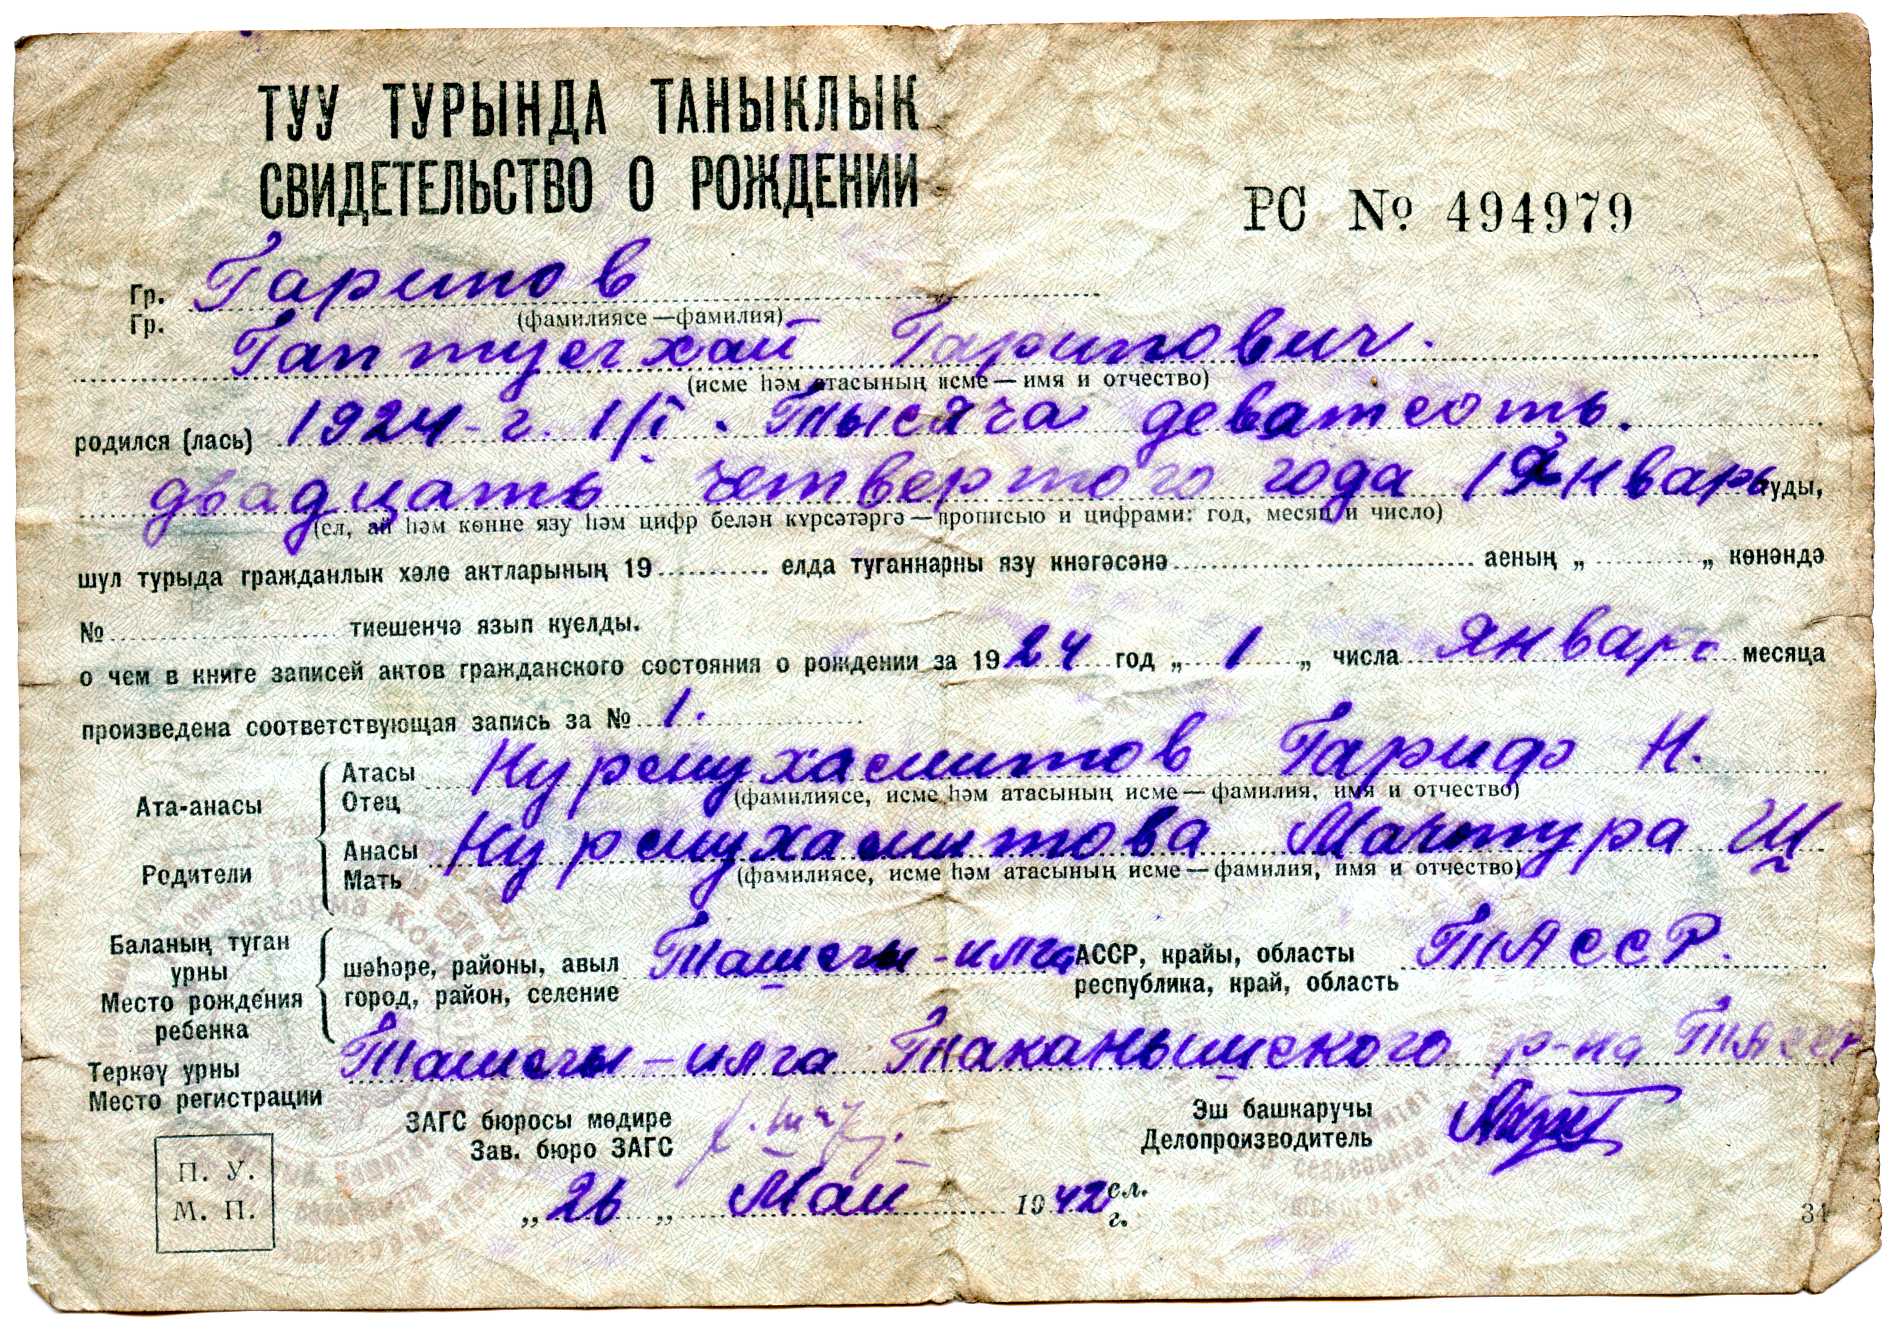 ТУУ ТУРЫНДА ТАНЫКЛЫК
СВИДЕТЕЛЬСТВО О РОЖДЕНИИ
РС № 494979
Гр. Гарипов
Гр. (фамилиясе—фамилия)
Гарипович.
(исме һәм атасының исме — имя и отчество)
родился (лась) 1924 г. 1/I. Тысяча деватсоть.
двадцать четвертого года 1 Январь туды,
(ел, ай һәм көнне язу һәм цифр белән күрсәтәргә — прописью и цифрами: год, месяц и число)
шул турыда гражданлык хәле актларының 19 елда туганнарны язу кнәгәсәнә аеның „ „ көнәндә
№ тиешенчә язып куелды.
о чем в книге записей актов гражданского состояния о рождении за 1924 год „ 1 „ числа январь месяца
произведена соответствующая запись за № 1.
Ата-анасы
Родители
Атасы Нурмухаметов Гариф Н.
Отец (фамилиясе, исме һәм атасының исме — фамилия, имя и отчество)
Анасы Нурмухаметова Мачтура Ш
Мать (фамилиясе, исме һәм атасының исме — фамилия, имя и отчество)
Баланың туган урны
Место рождения ребенка
шәһәре, районы, авыл Ташсчы-илга АССР, крайы, областы ТАССР.
город, район, селение республика, край, область
Теркәү урны Ташсчы-илга Таканышского р-на ТАССР
Место регистрации
ЗАГС бюросы мөдире
Зав. бюро ЗАГС
Эш башкаручы
Делопроизводитель
П. У.
М. П.
„ 26 „ Май 1942 ел.
г.
34